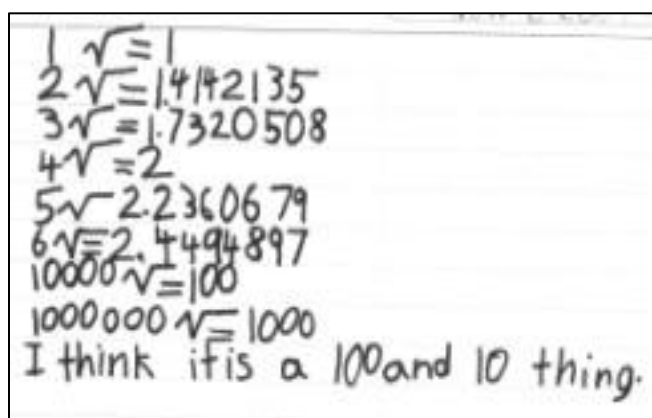 1 √= 1
2 √= 1.4142135
3 √= 1.7320508
4 √ = 2
5 √ 2.2360679
6 √= 2.4494897
10000 √ = 100
1000000 √= 1000
I think it is a 100 and 10 thing.